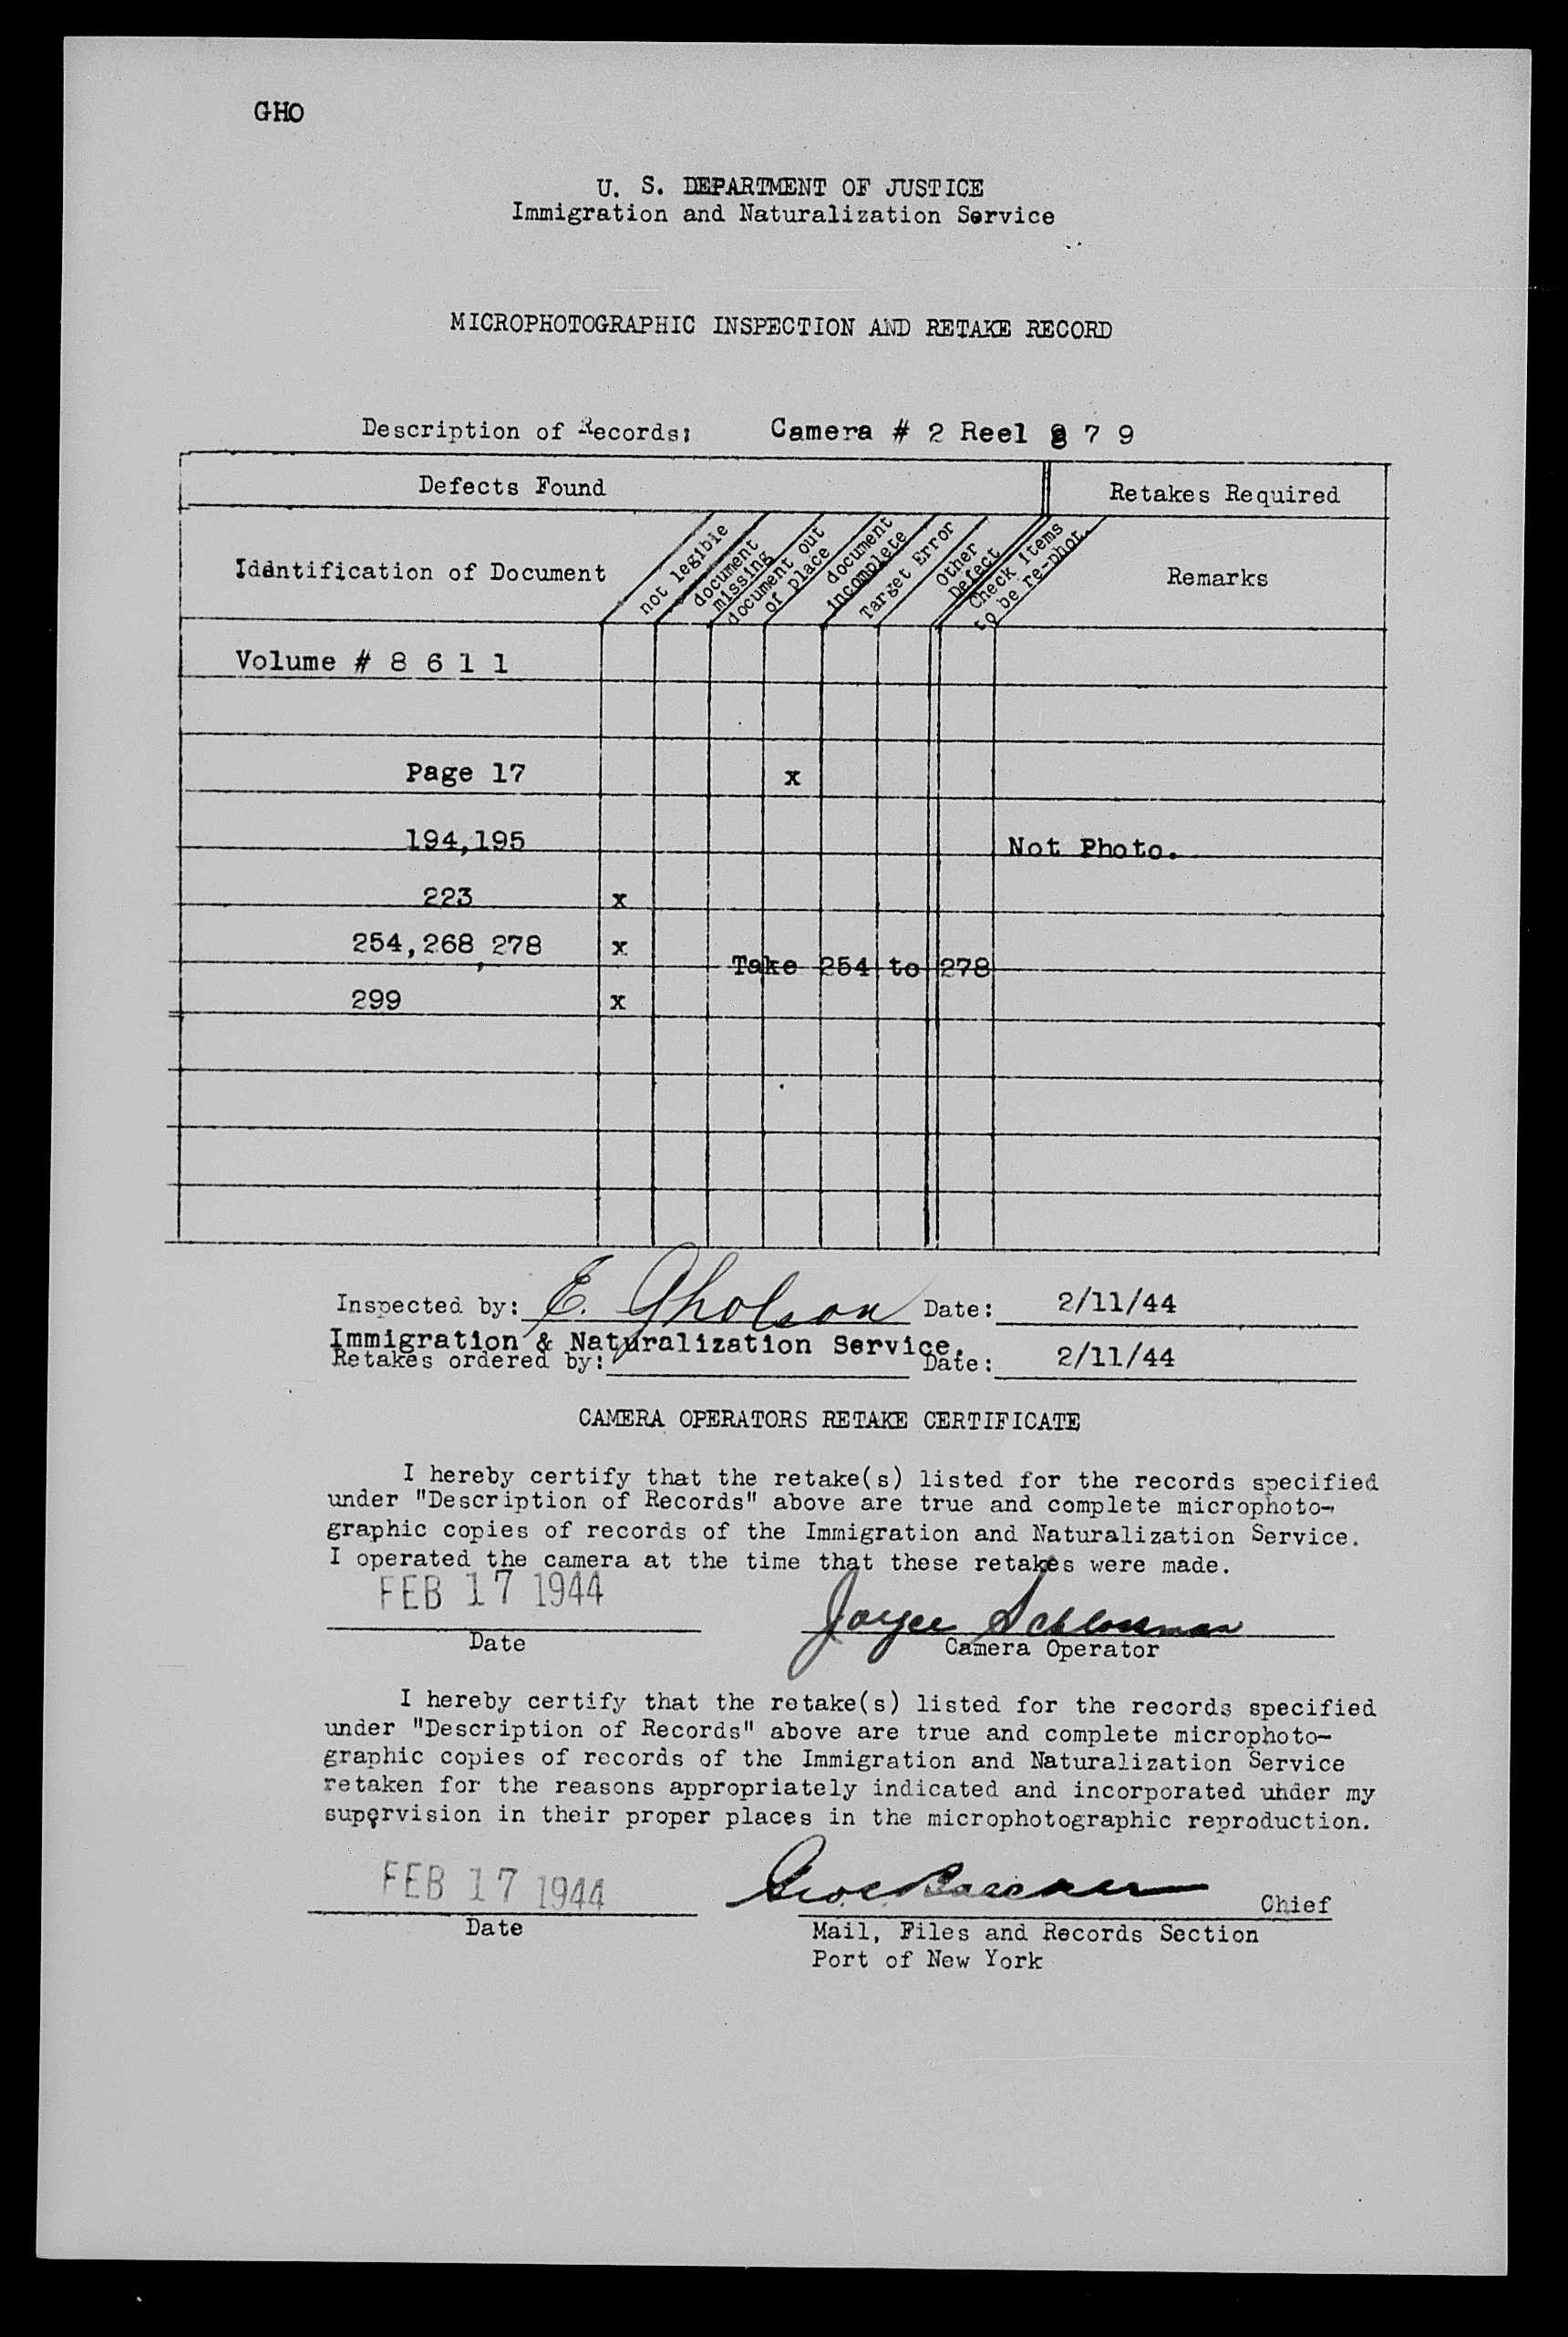 GHO
U. S. DEPARTMENT OF JUSTICE
Immigration and Naturalization Service
MICROPHOTOGRAPHIC INSPECTION AND RETAKE RECORD
Description of Records: Camera # 2 Reel 8 7 9
Defects Found Retakes Required
Identification of Document
not legible
document missing
document out of place
document incomplete
Target Error
Other Defect
Check items to be re-phot.
Remarks
Volume # 8 6 1 1
Page 17 x
194,195 Not Photo.
223 x
254,268,278 x Take 254 to 278
299 x
Inspected by: E. Gholson Date: 2/11/44
Immigration & Naturalization Service.
Retakes ordered by: Date: 2/11/44
CAMERA OPERATORS RETAKE CERTIFICATE
I hereby certify that the retake(s) listed for the records specified
under "Description of Records" above are true and complete microphoto-
graphic copies of records of the Immigration and Naturalization Service.
I operated the camera at the time that these retakes were made.
FEB 17 1944 Joyce Schlossman
Date Camera Operator
I hereby certify that the retake(s) listed for the records specified
under "Description of Records" above are true and complete microphoto-
graphic copies of records of the Immigration and Naturalization Service
retaken for the reasons appropriately indicated and incorporated under my
supervision in their proper places in the microphotographic reproduction.
FEB 17 1944 Chief
Date Mail, Files and Records Section
Port of New York